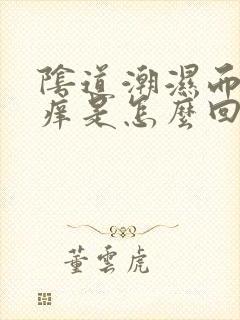 陰道潮濕而
痒是怎麼回
董雲虎